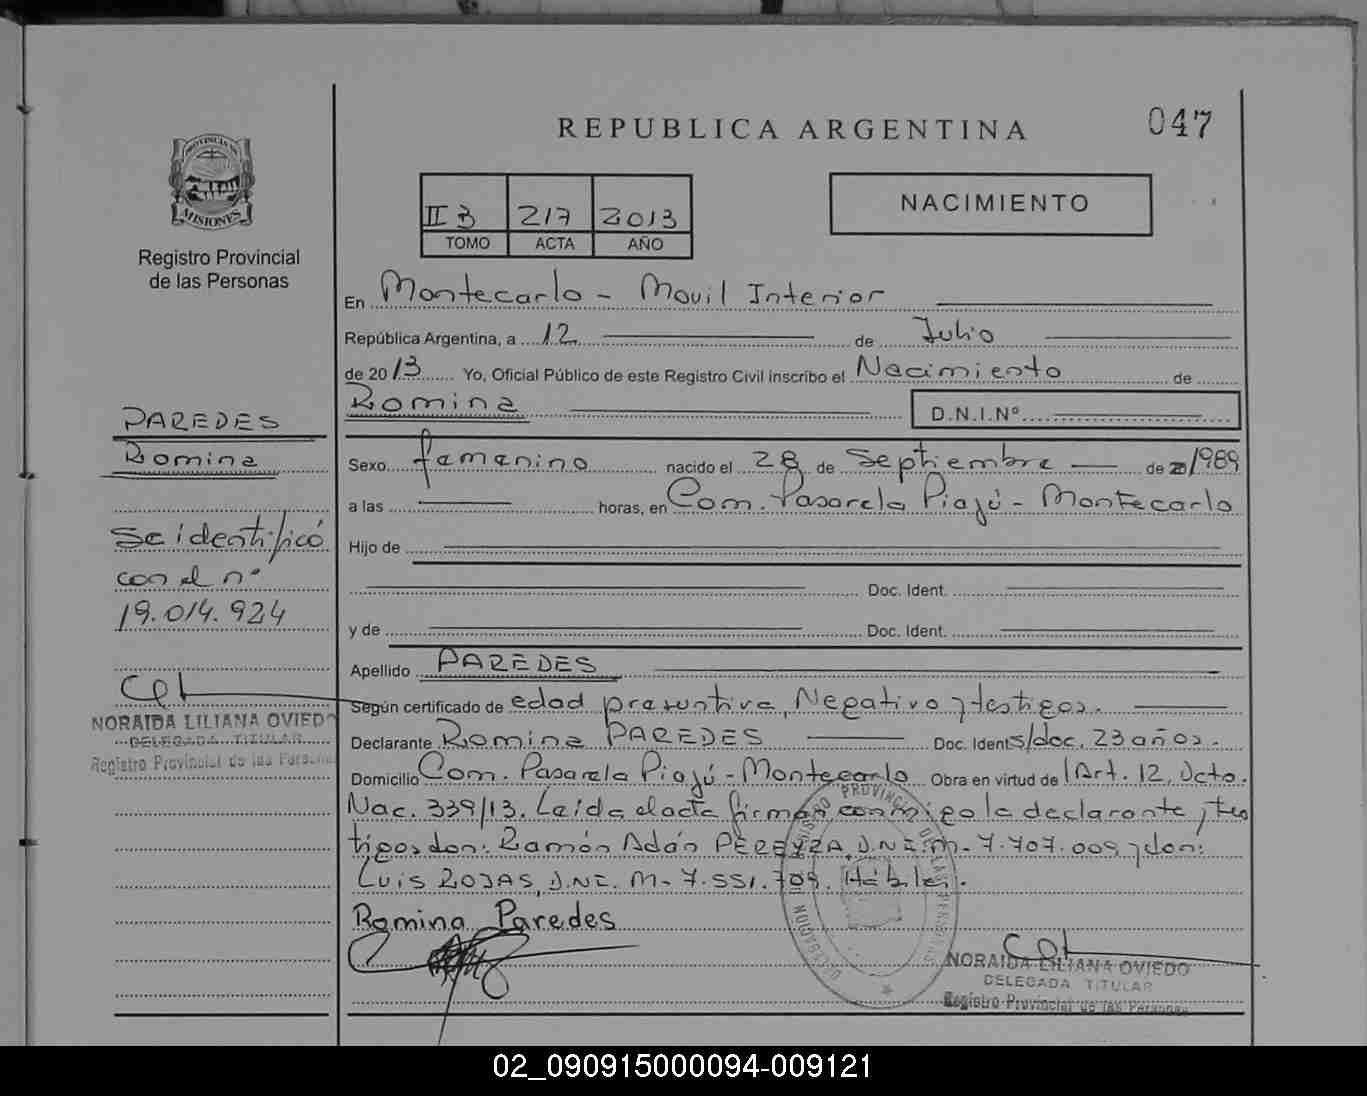 REPUBLICA ARGENTINA
047
PROVINCIA DE
MISIONES
Registro Provincial
de las Personas
II B 217 2013
TOMO ACTA AÑO
NACIMIENTO
En Montecarlo - Movil Interior
República Argentina, a 12 de Julio
de 2013 Yo, Oficial Público de este Registro Civil inscribo el Nacimiento de
Romina D.N.I.Nº
PAREDES
Romina
Se identificó
con el nº
19.014.924
NORAIDA LILIANA OVIEDO
DELEGADA TITULAR
Registro Provincial de las Personas
Sexo femenino nacido el 28 de Septiembre de 1989
a las horas, en Com. Pasarela Piajú - Montecarlo
Hijo de
Doc. Ident.
y de Doc. Ident.
Apellido PAREDES
Según certificado de edad presuntiva, Negativo y testigos.
Declarante Romina PAREDES Doc. Ident s/doc. 23 años.
Domicilio Com. Pasarela Piajú - Montecarlo Obra en virtud de Art. 12, Dcto.
Nac. 339/13. Leida el acta firman conmigo la declarante y tes
tigos don: Ramón Adán PEREYRA, D.N.I. M- 7.707.009 y don:
Luis ROJAS, D.N.I. M- 7.551.709. Hábiles.
Romina Paredes
DELEGACION REGISTRO PROVINCIAL DE LAS PERSONAS
NORAIDA LILIANA OVIEDO
DELEGADA TITULAR
Registro Provincial de las Personas
02_090915000094-009121